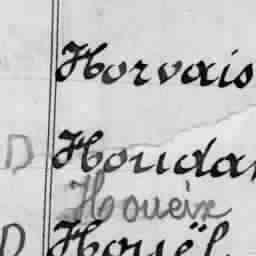 Horvais
D Houdar
Houeix
D Houël